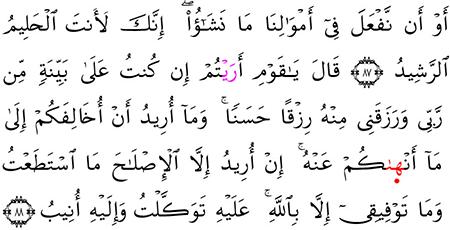 أَوۡ أَن نَّفۡعَلَ فِيٓ أَمۡوَٰلِنَا مَا نَشَٰٓؤُاْۖ إِنَّكَ لَأَنتَ ٱلۡحَلِيمُ
ٱلرَّشِيدُ ٨٧ قَالَ يَٰقَوۡمِ أَرَيۡتُمۡ إِن كُنتُ عَلَىٰ بَيِّنَةٖ مِّن
رَّبِّي وَرَزَقَنِي مِنۡهُ رِزۡقًا حَسَنٗاۚ وَمَآ أُرِيدُ أَنۡ أُخَالِفَكُمۡ إِلَىٰ
مَآ أَنۡهَىٰكُمۡ عَنۡهُۚ إِنۡ أُرِيدُ إِلَّا ٱلۡإِصۡلَٰحَ مَا ٱسۡتَطَعۡتُ
وَمَا تَوۡفِيقِيٓ إِلَّا بِٱللَّهِۚ عَلَيۡهِ تَوَكَّلۡتُ وَإِلَيۡهِ أُنِيبُ ٨٨